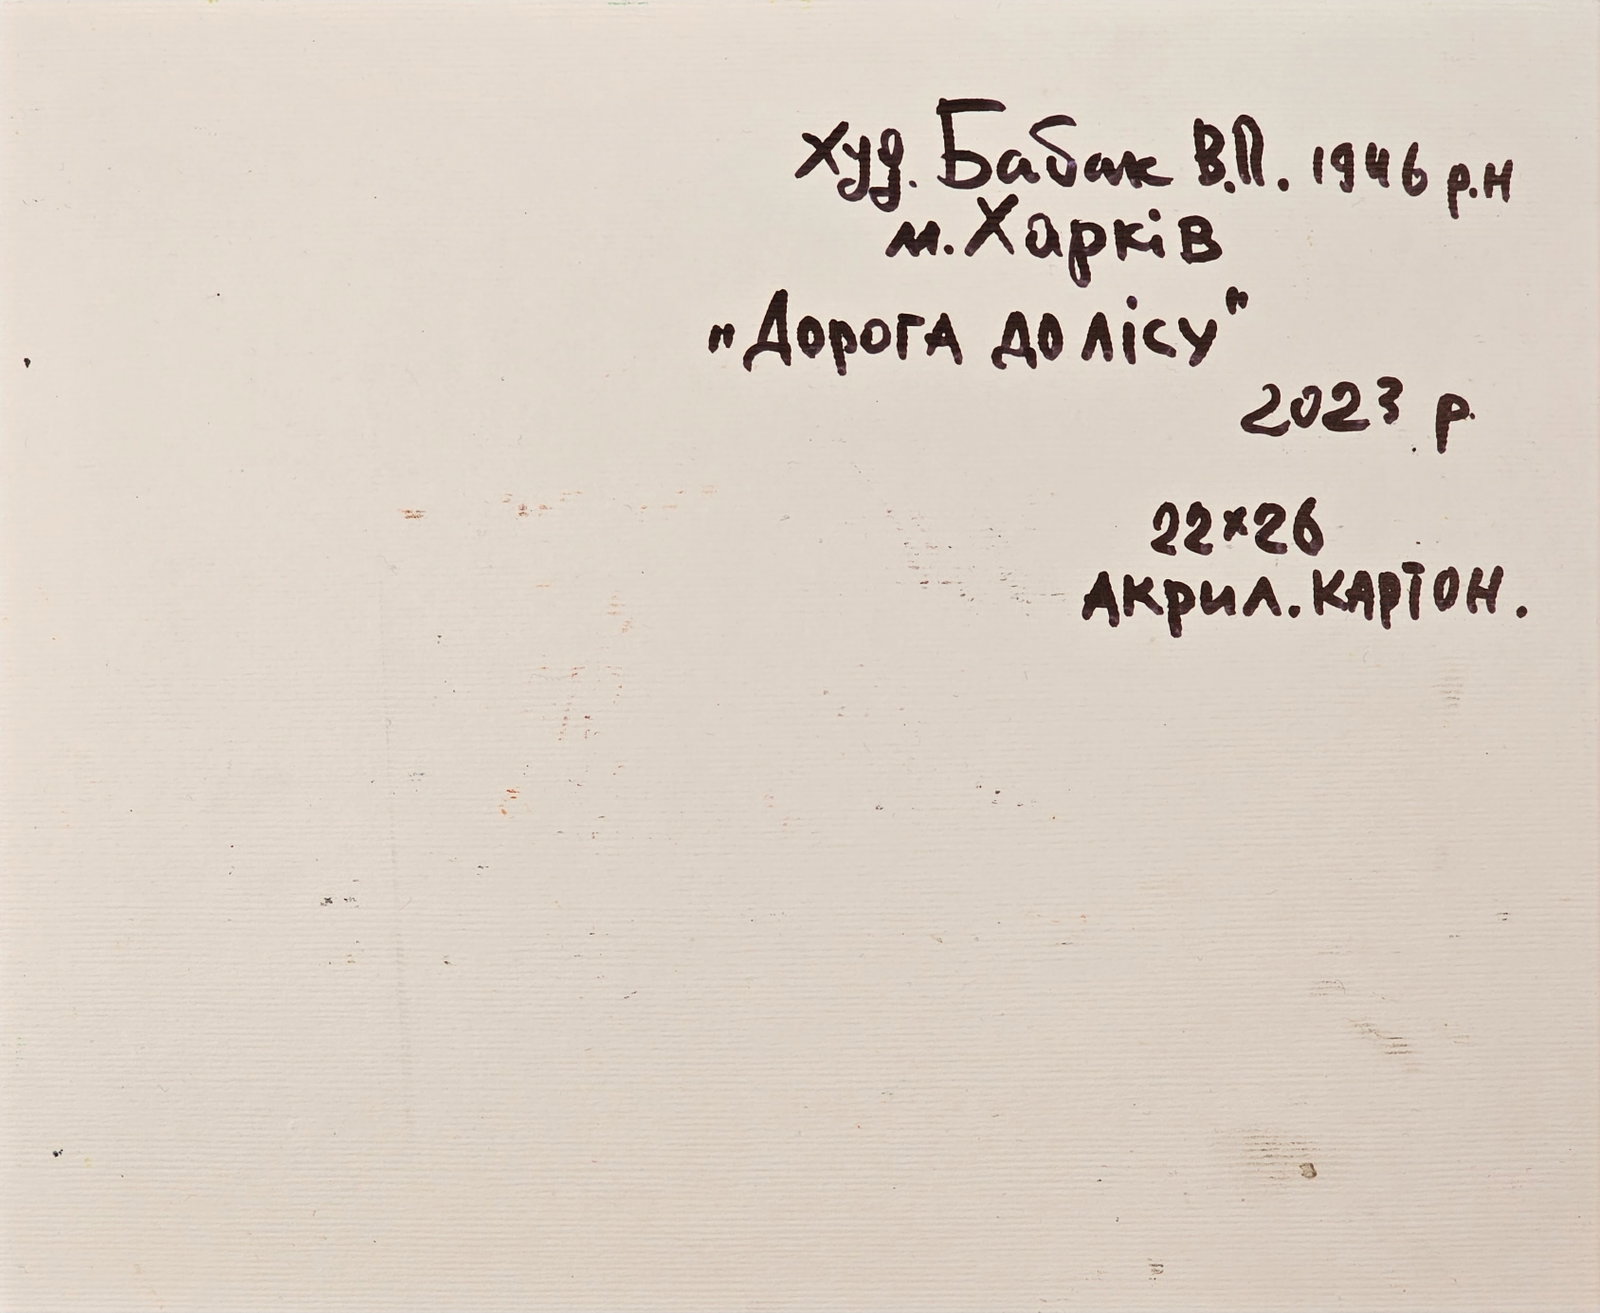 Худ. Бабак В.П. 1946 р.н
м. Харків
„Дорога до лісу"
2023 р.
22×26
Акрил. картон.